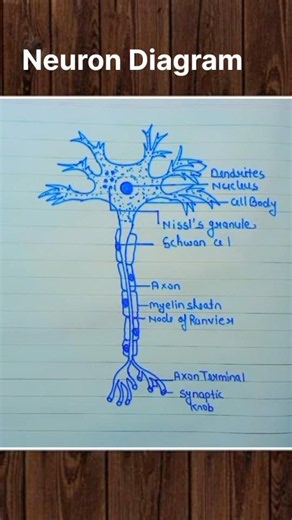 Neuron Diagram
Dendrites
Nucleus
Cell Body
Nissl's granules
Schwan cel
Axon
myelin sheatn
Node of Ranvier
Axon Terminal
Synaptic
knob